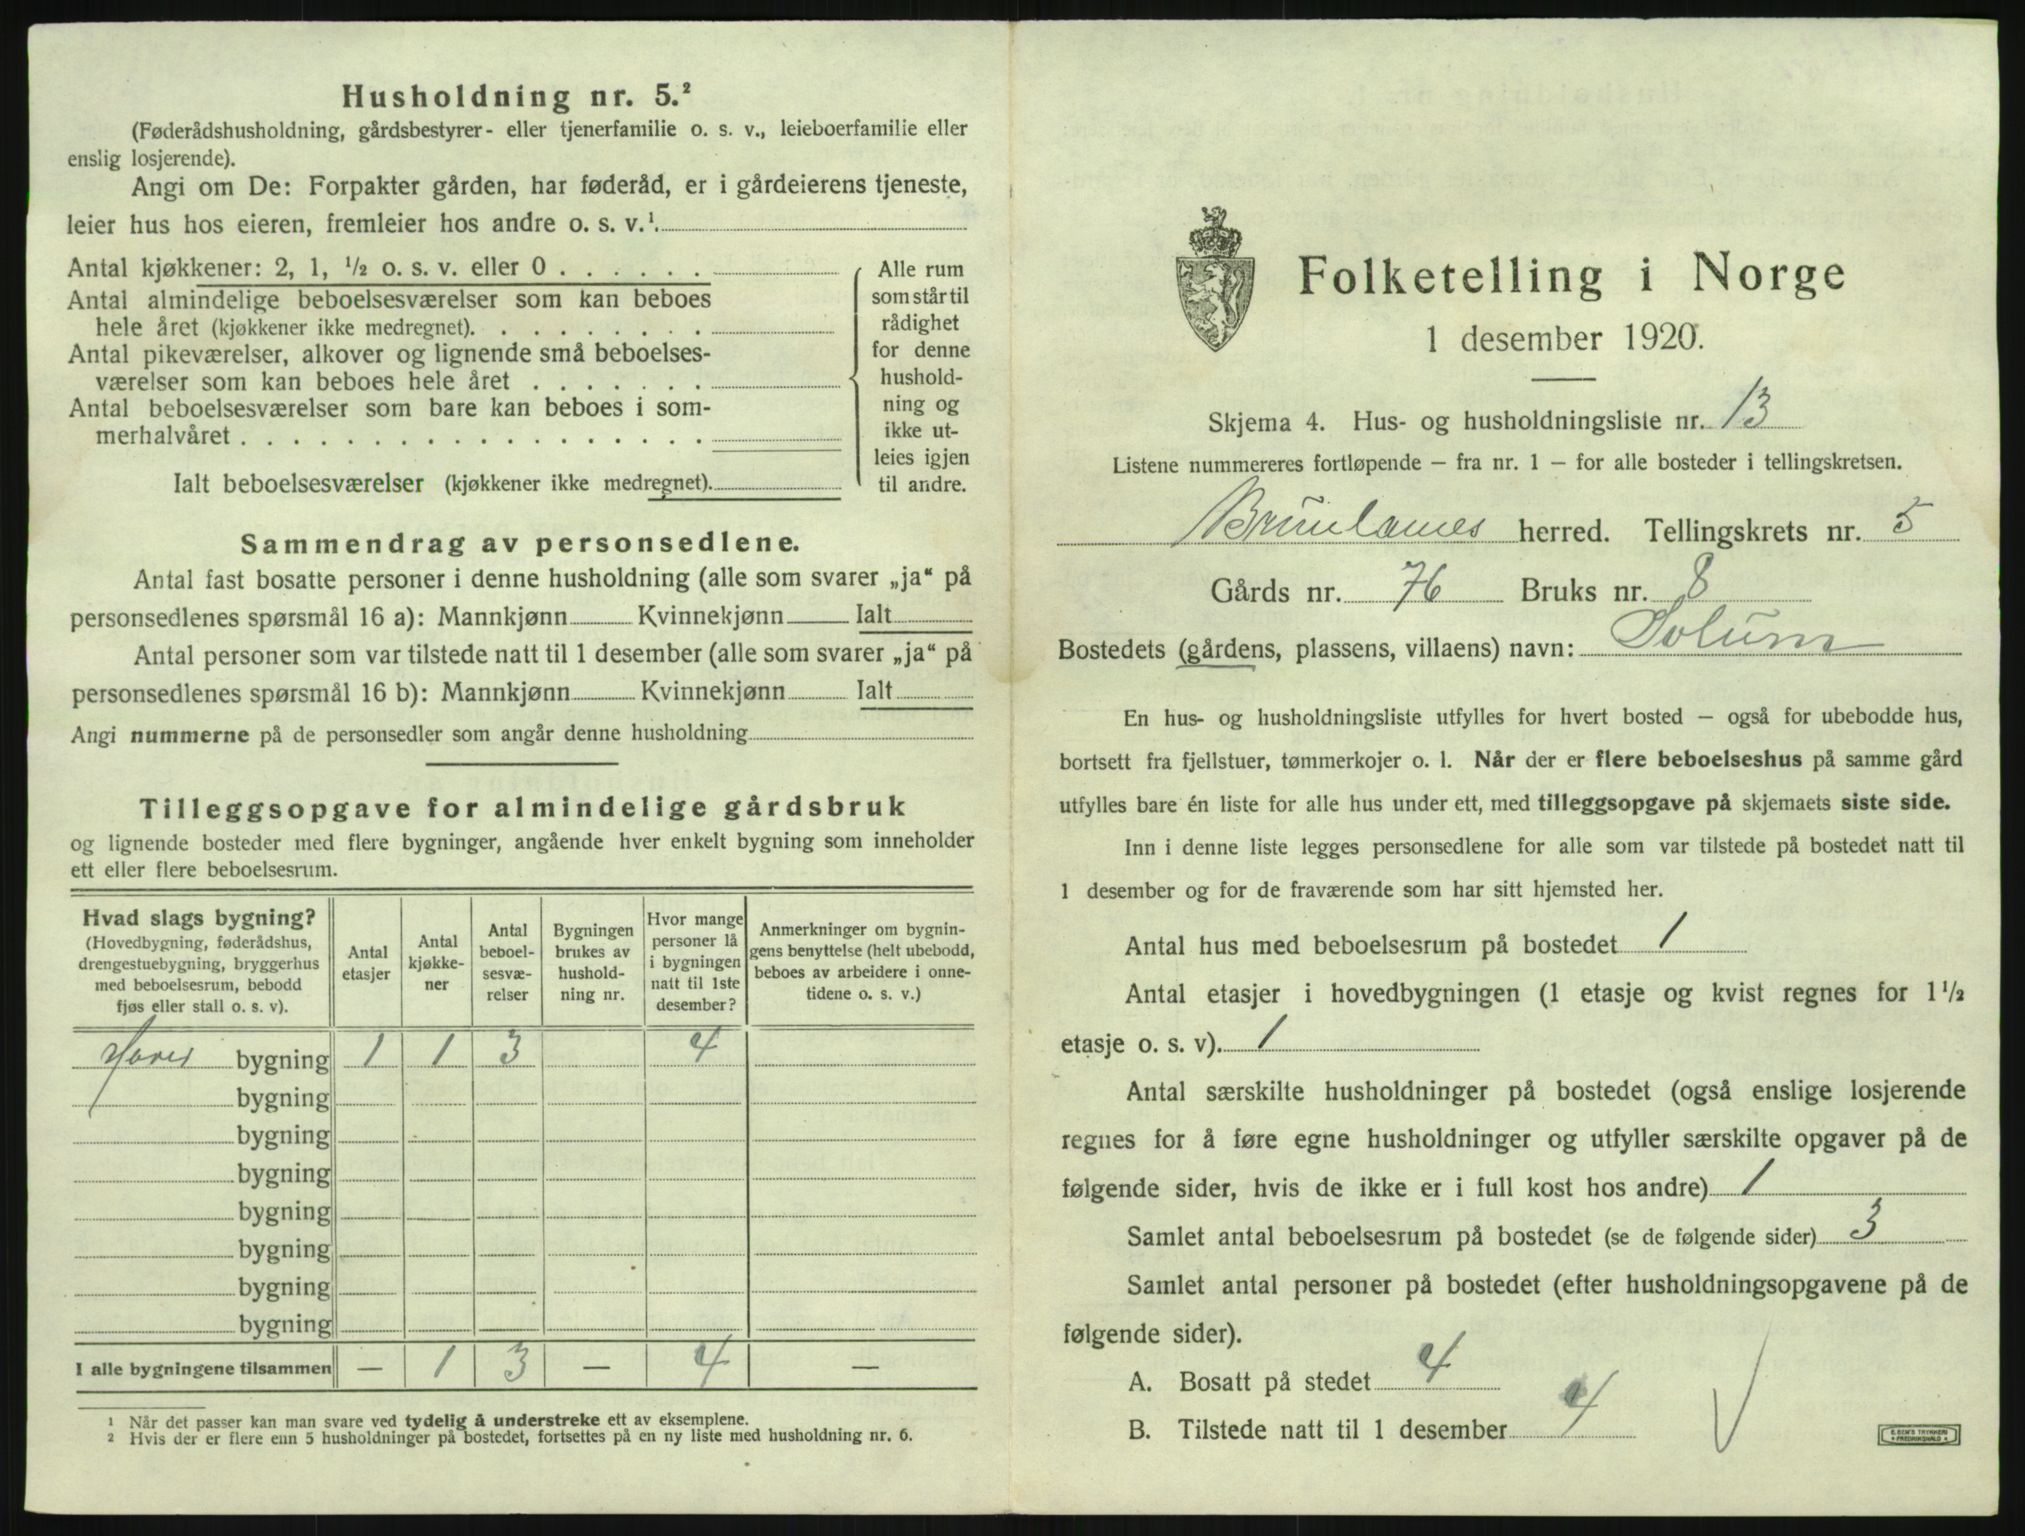 Husholdning nr. 5.²
(Føderådshusholdning, gårdsbestyrer- eller tjenerfamilie o. s. v., leieboerfamilie eller
enslig losjerende).
Angi om De: Forpakter gården, har føderåd, er i gårdeierens tjeneste,
leier hus hos eieren, fremleier hos andre o. s. v.¹.
Antal kjøkkener: 2, 1, ½ o. s. v. eller 0 . . . . . .
Antal almindelige beboelsesværelser som kan beboes
hele året (kjøkkener ikke medregnet). . . . . . . . .
Antal pikeværelser, alkover og lignende små beboelses-
værelser som kan beboes hele året . . . . . . .
Antal beboelsesværelser som bare kan beboes i som-
merhalvåret . . . . . . . . . . . . . . . . . .
Ialt beboelsesværelser (kjøkkener ikke medregnet).
Alle rum
som står til
rådighet
for denne
hushold-
ning og
ikke ut-
leies igjen
til andre.
Sammendrag av personsedlene.
Antal fast bosatte personer i denne husholdning (alle som svarer „ja“ på
personsedlenes spørsmål 16 a): Mannkjønn Kvinnekjønn Ialt
Antal personer som var tilstede natt til 1 desember (alle som svarer „ja“ på
personsedlenes spørsmål 16 b): Mannkjønn Kvinnekjønn Ialt
Angi nummerne på de personsedler som angår denne husholdning
Tilleggsopgave for almindelige gårdsbruk
og lignende bosteder med flere bygninger, angående hver enkelt bygning som inneholder
ett eller flere beboelsesrum.
Hvad slags bygning?
(Hovedbygning, føderådshus,
drengestuebygning, bryggerhus
med beboelsesrum, bebodd
fjøs eller stall o. s. v).
Antal
etasjer
Antal
kjøkke-
ner
Antal
beboel-
sesvæ-
relser
Bygningen
brukes av
hushold-
ning nr.
Hvor mange
personer lå
i bygningen
natt til 1ste
desember?
Anmerkninger om bygnin-
gens benyttelse (helt ubebodd,
beboes av arbeidere i onne-
tidene o. s. v.)
Hoved bygning 1 1 3 4
bygning
bygning
bygning
bygning
bygning
bygning
bygning
I alle bygningene tilsammen — 1 3 — 4 —
¹ Når det passer kan man svare ved tydelig å understreke ett av eksemplene.
² Hvis der er flere enn 5 husholdninger på bostedet, fortsettes på en ny liste med husholdning nr. 6.
Folketelling i Norge
1 desember 1920.
Skjema 4. Hus- og husholdningsliste nr. 13
Listene nummereres fortløpende – fra nr. 1 – for alle bosteder i tellingskretsen.
Brunlanes herred. Tellingskrets nr. 5
Gårds nr. 76 Bruks nr. 8
Bostedets (gårdens, plassens, villaens) navn: Solum
En hus- og husholdningsliste utfylles for hvert bosted – også for ubebodde hus,
bortsett fra fjellstuer, tømmerkojer o. l. Når der er flere beboelseshus på samme gård
utfylles bare én liste for alle hus under ett, med tilleggsopgave på skjemaets siste side.
Inn i denne liste legges personsedlene for alle som var tilstede på bostedet natt til
1 desember og for de fraværende som har sitt hjemsted her.
Antal hus med beboelsesrum på bostedet 1
Antal etasjer i hovedbygningen (1 etasje og kvist regnes for 1½
etasje o. s. v). 1
Antal særskilte husholdninger på bostedet (også enslige losjerende
regnes for å føre egne husholdninger og utfyller særskilte opgaver på de
følgende sider, hvis de ikke er i full kost hos andre) 1
Samlet antal beboelsesrum på bostedet (se de følgende sider) 3
Samlet antal personer på bostedet (efter husholdningsopgavene på de
følgende sider).
A. Bosatt på stedet 4
B. Tilstede natt til 1 desember 4
E. SEM'S TRYKKERI
FREDRIKSHALD